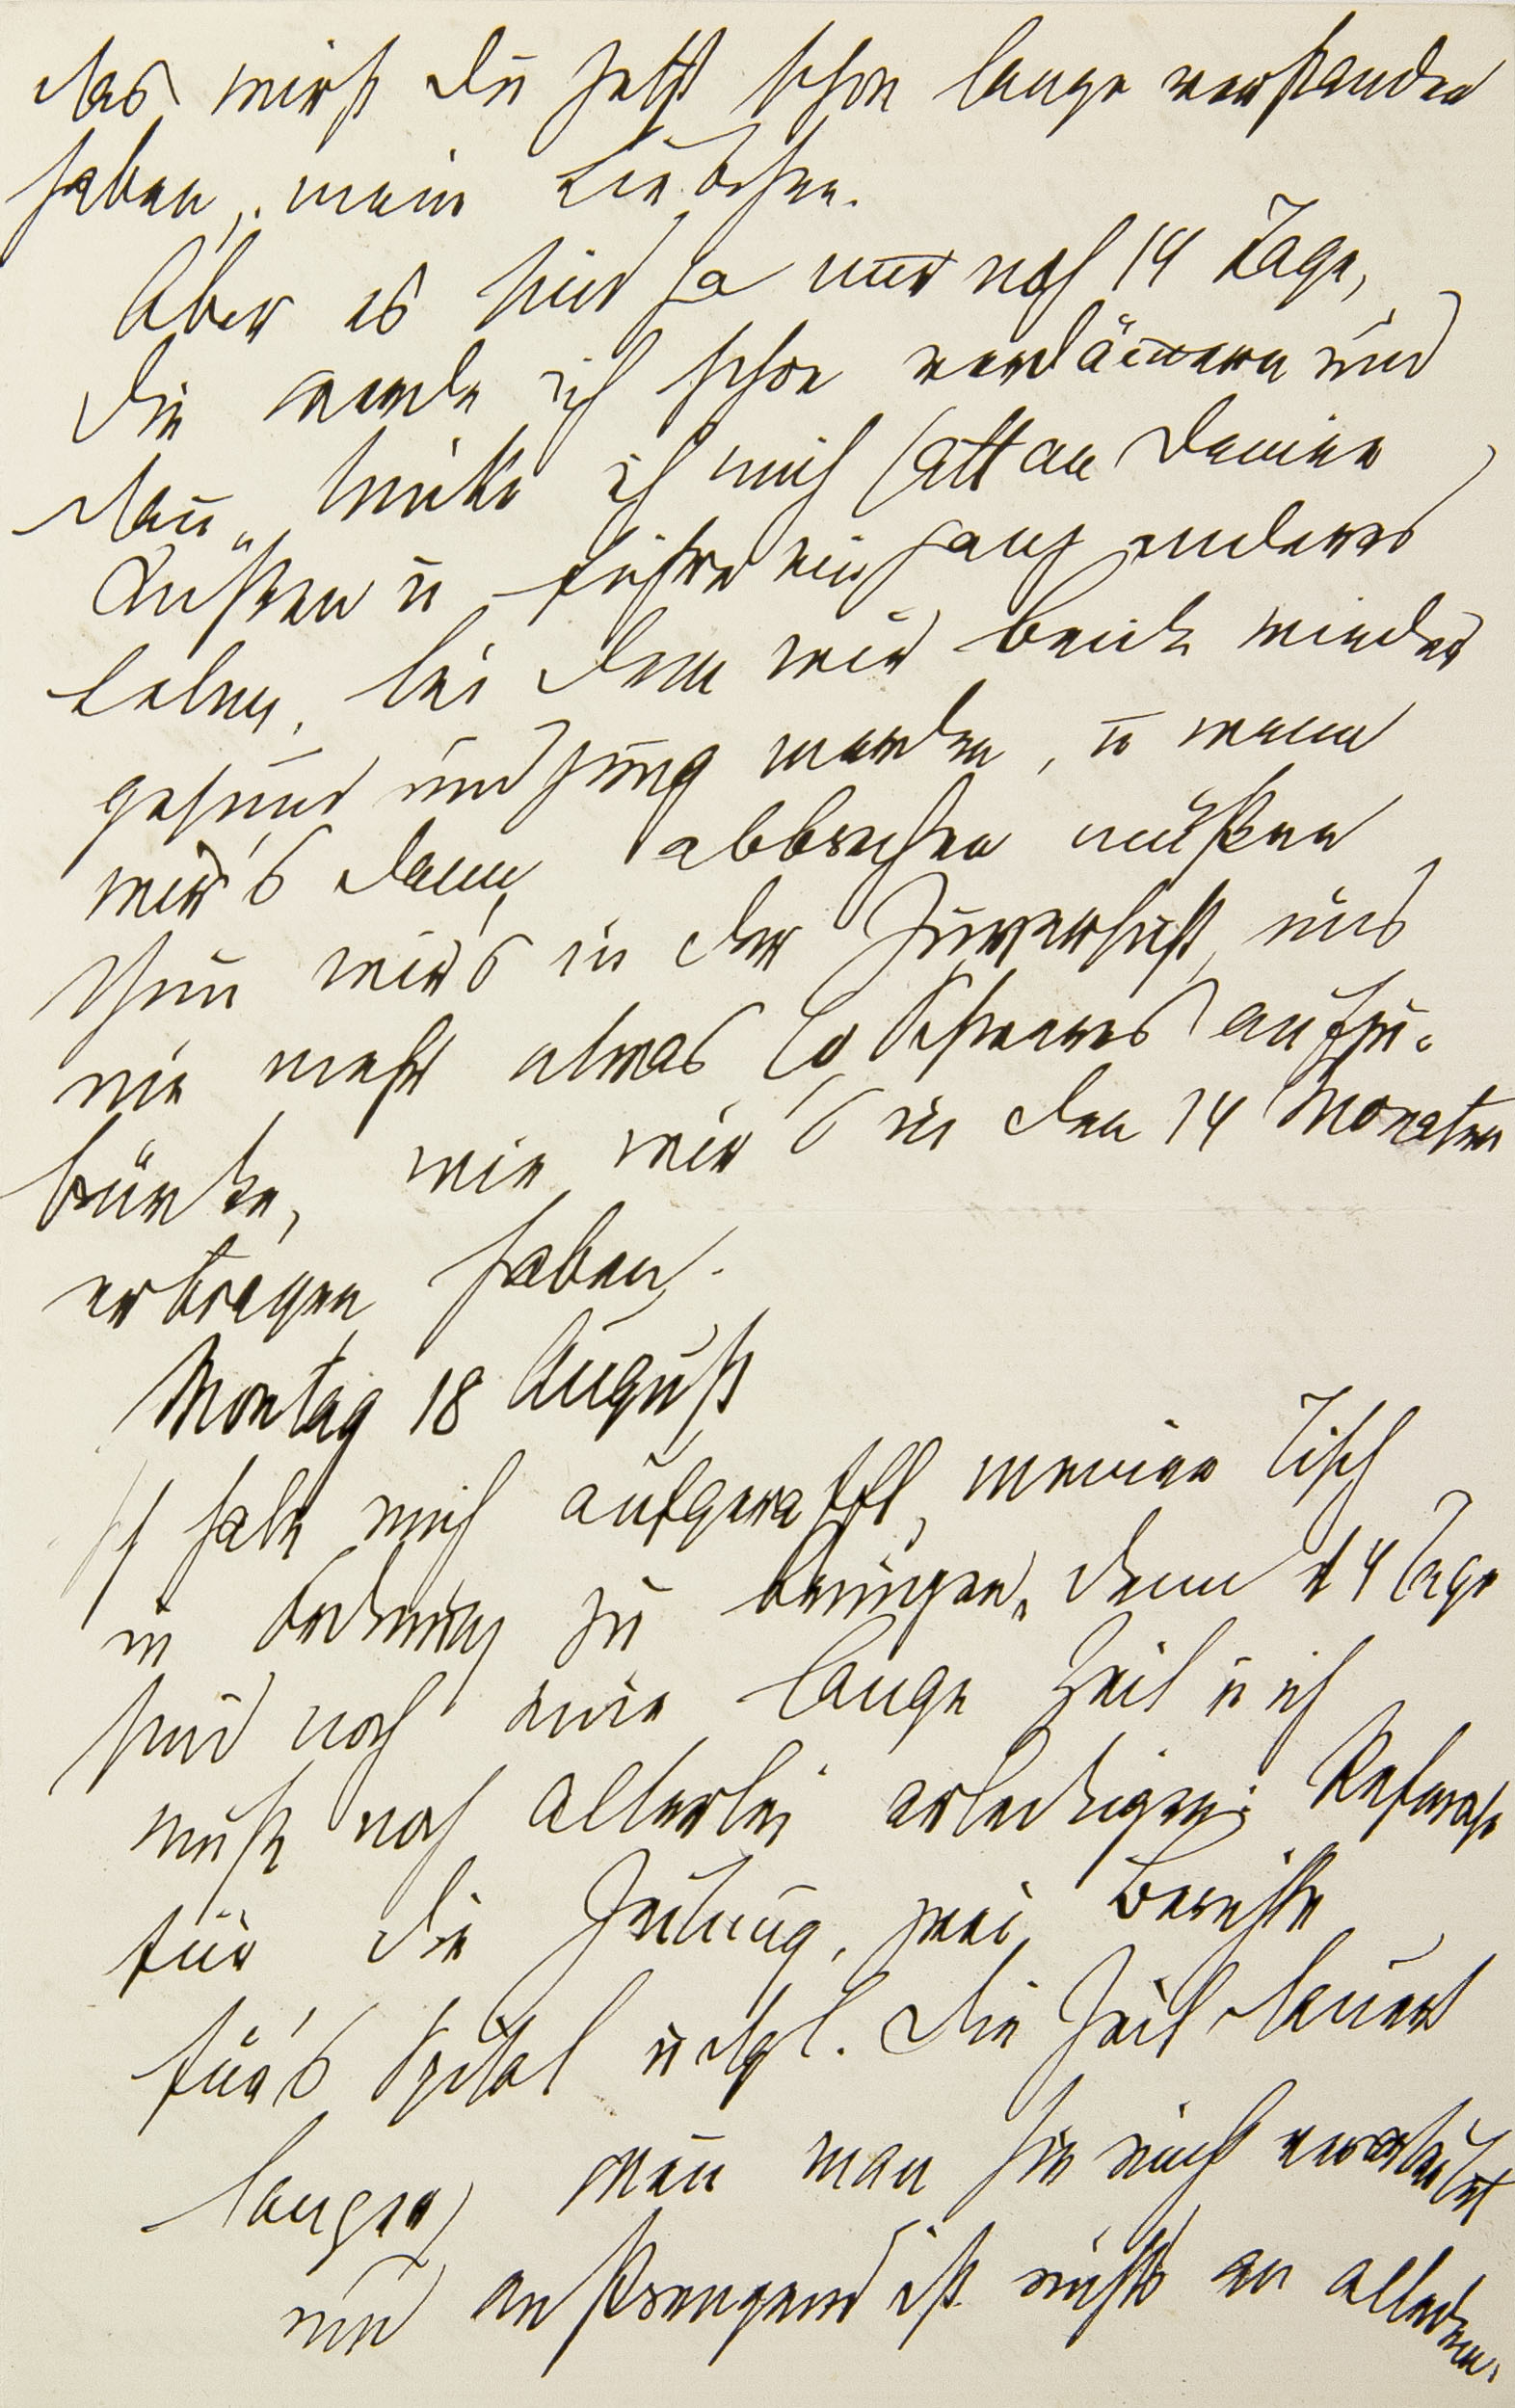 das wirst Du jetzt schon lange verstanden
haben, mein Liebchen.
Aber es sind ja nur noch 14 Tage,
die werde ich schon verdämmern und
dann trinke ich mich satt an Deinen
Küßen u führe ein ganz anderes
Leben, bei dem wir beide wieder
gesund und jung werden, u wenn
wir's dann abbrechen müßen
thun wir's in der Zuversicht, uns
nie mehr etwas so Schweres aufzu-
bürden, wie wir's in den 14 Monaten
ertragen haben.
Montag 18 August
Ich habe mich aufgerafft, meinen Tisch
in Ordnung zu bringen, denn 14 Tage
sind noch eine lange Zeit u ich
muß noch allerlei erledigen; Referate
für die Zeitung, zwei Berichte
für's Spital u dgl. Die Zeit dauert
länger, wenn man sie nicht verarbeitet
und anstrengend ist nichts an alledem.